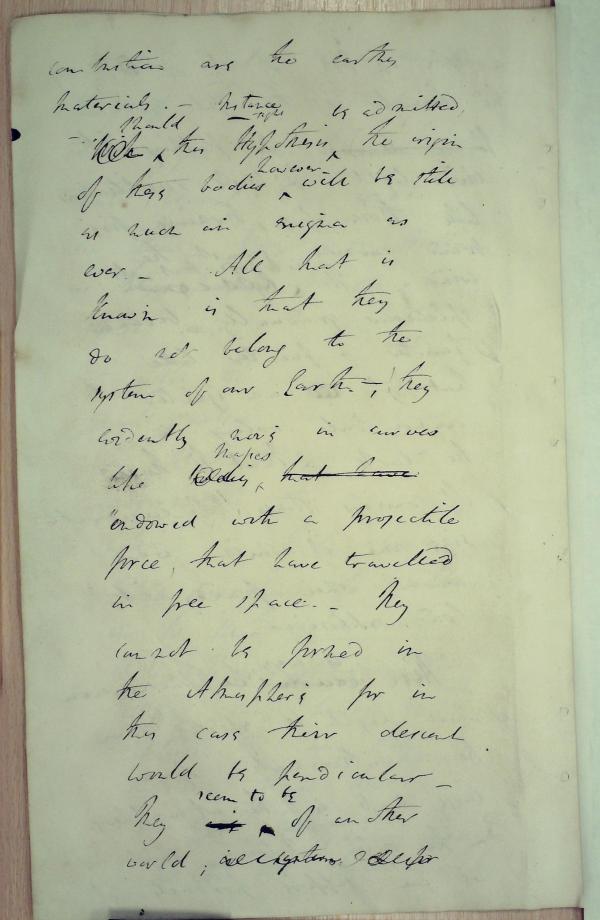 combustion are the earthy
materials. —
should be admitted
this Hypothesis the origin
however
of these bodies will be still
as much an enigma as
ever — All that is
known is that they
do not belong to the
system of our Earth —, they
evidently move in curves
masses
like bodies, that have
endowed with a projectile
force, that have travelled
in free space. — They
cannot be formed in
the Atmosphere for in
this case their descent
would be pendicular —
seem to be
They of another
world;